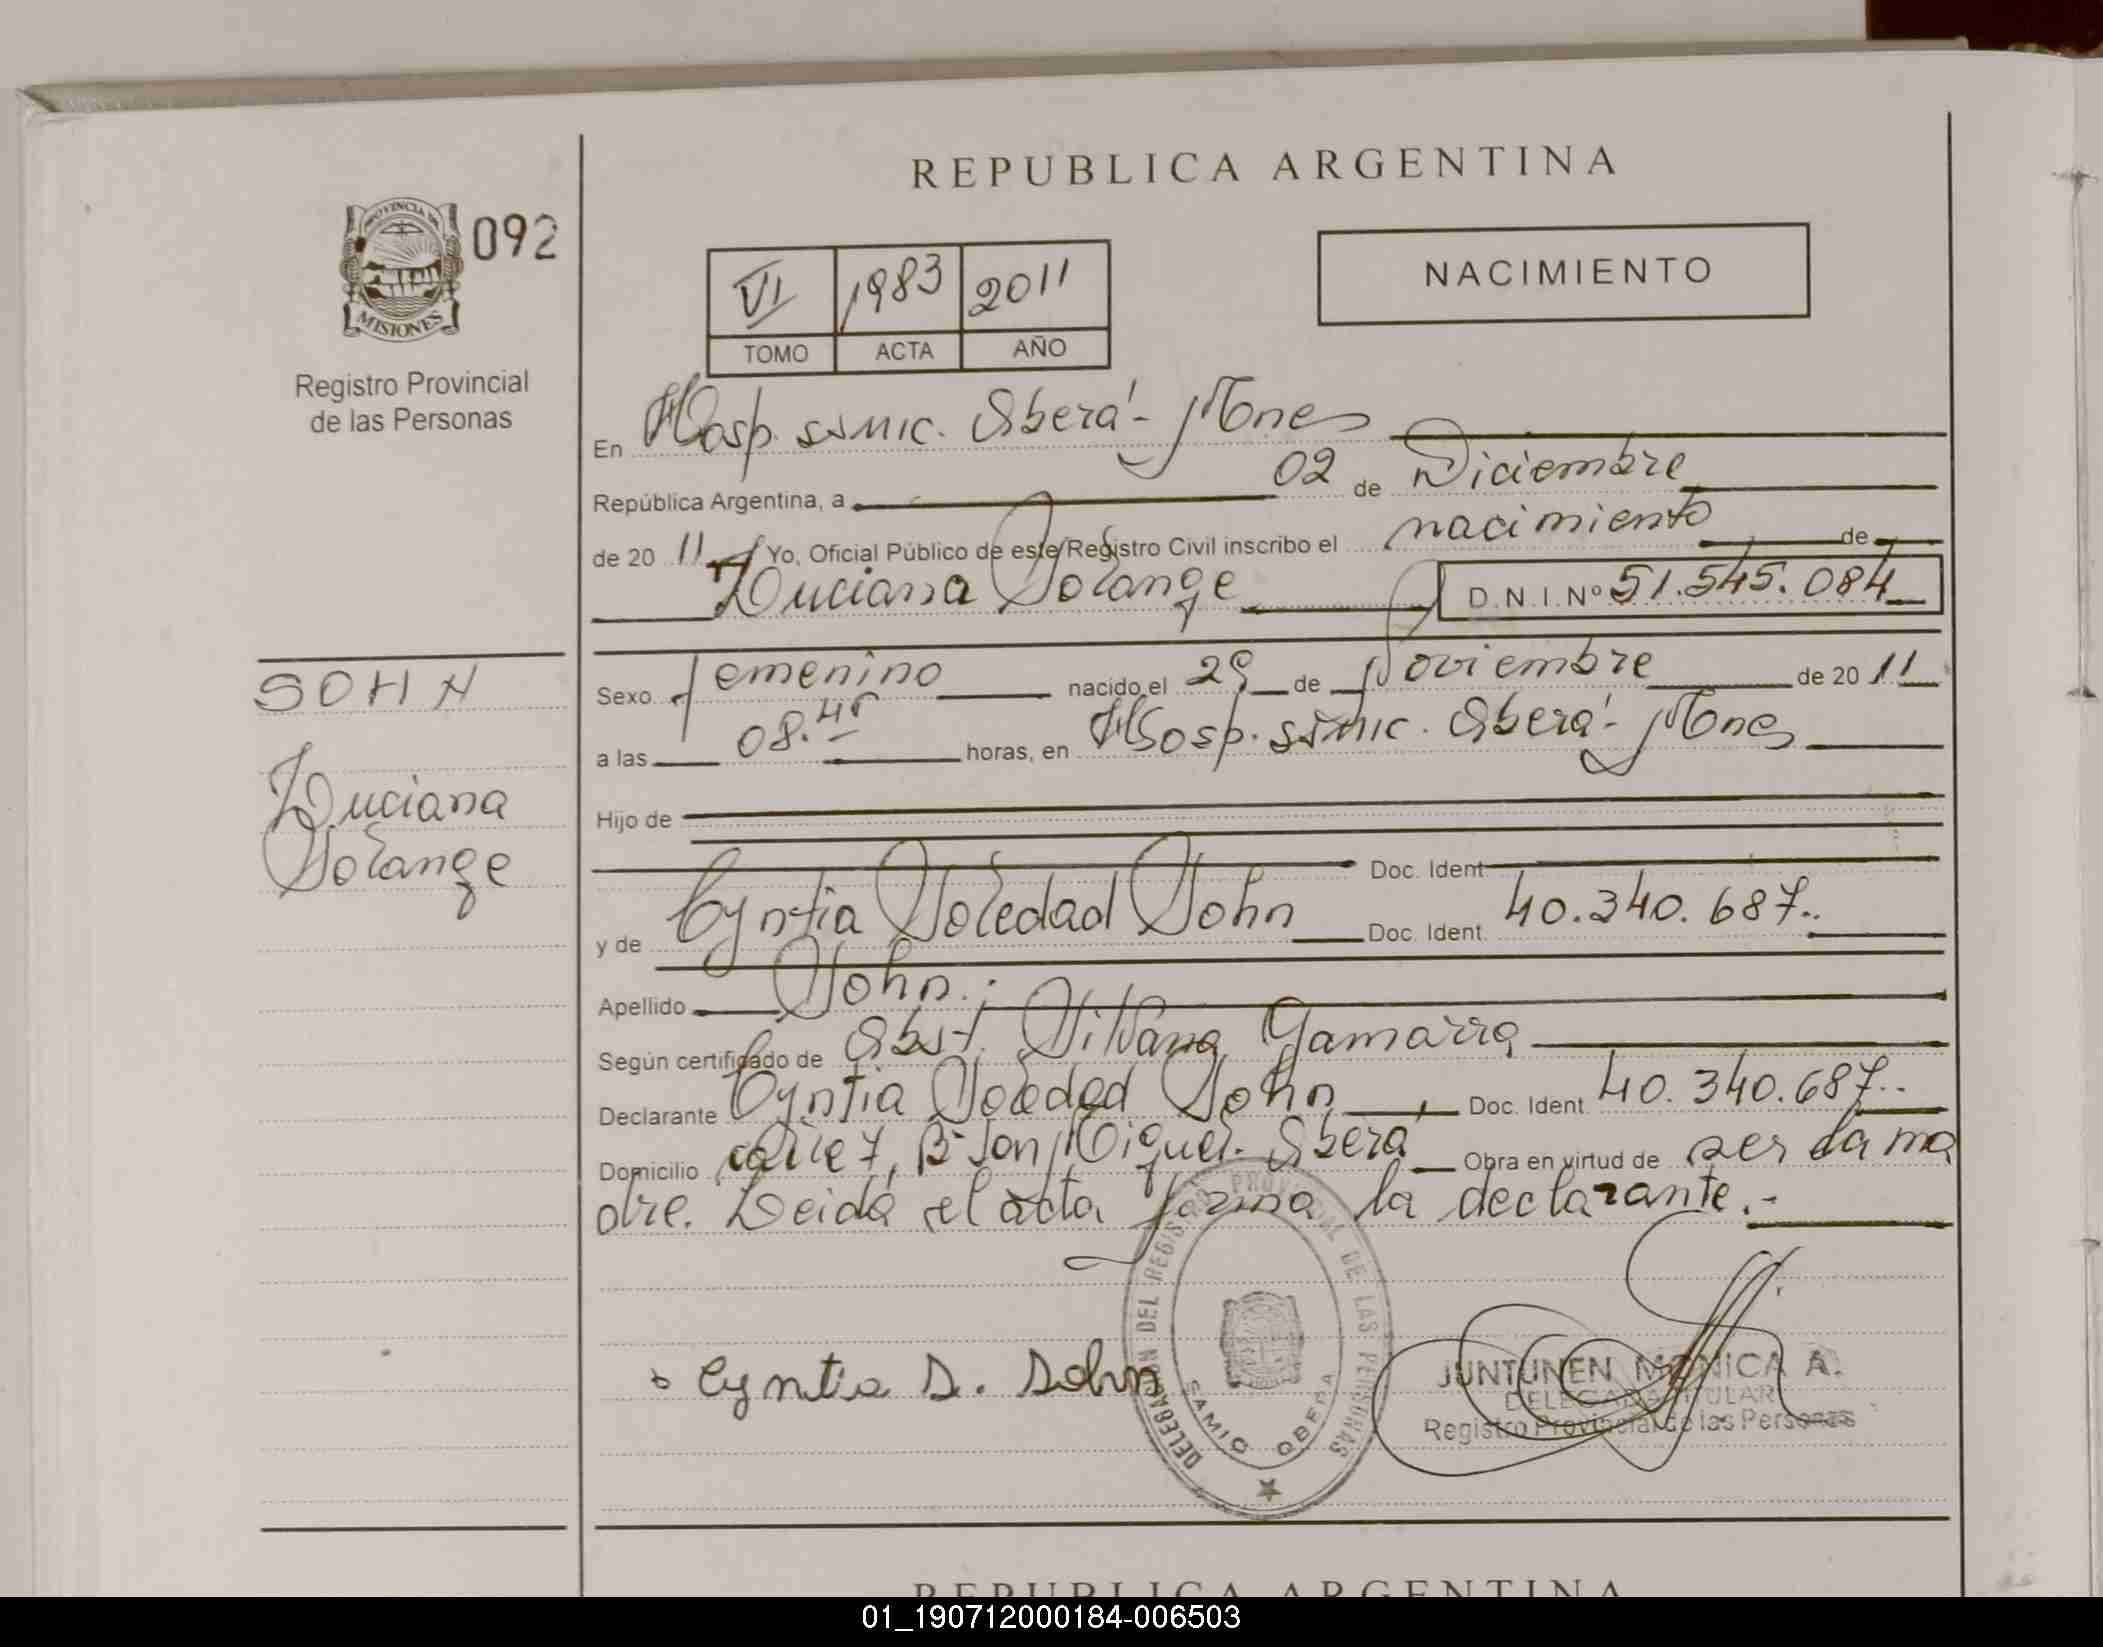 REPUBLICA ARGENTINA
PROVINCIA DE
MISIONES
092
Registro Provincial
de las Personas
VI 1983 2011
TOMO ACTA AÑO
NACIMIENTO
En Hosp. ssmic. Oberá - Mnes
República Argentina, a 02 de Diciembre
de 20 11 Yo, Oficial Público de este Registro Civil inscribo el nacimiento de
Luciana Solange D.N.I.Nº 51.545.084
SOHN
Luciana
Solange
Sexo femenino nacido el 29 de Noviembre de 20 11
a las 08.45 horas, en Hosp. ssmic. Oberá - Mnes
Hijo de
Doc. Ident
y de Cyntia Soledad Sohn Doc. Ident. 40.340.687..
Apellido Sohn.;
Según certificado de Obst. Silvana Gamarra
Declarante Cyntia Soledad Sohn, Doc. Ident 40.340.687..
Domicilio calle 7, Bº San Miguel. Oberá Obra en virtud de ser la ma
dre. Leida el acta firma la declarante.-
DELEGACION DEL REGISTRO PROVINCIAL DE LAS PERSONAS
SAMIC OBERA
Cyntia S. Sohn
JUNTUNEN MONICA A.
DELEGADA TITULAR
Registro Provincial de las Personas
REPUBLICA ARGENTINA
01_190712000184-006503